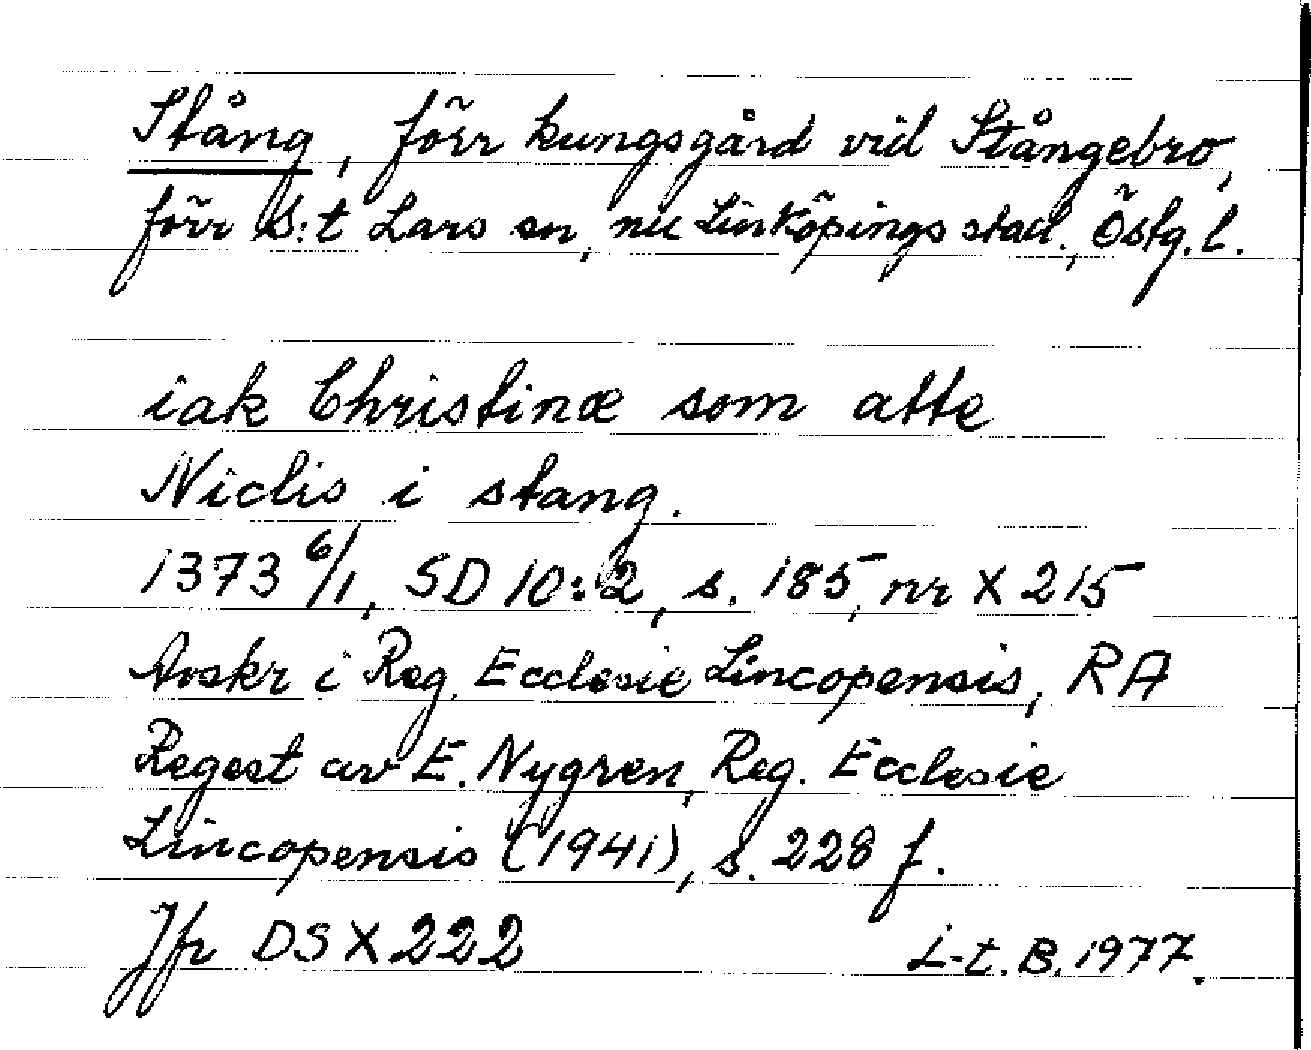 Stång, förr kungsgård vid Stångebro,
förr S:t Lars sn, nu Linköpings stad., Östg. l.
iak Christinæ som atte
Niclis i stang.
1373 6/1, SD 10:2, s. 185, nr X 215
Avskr i Reg. Ecclesie Lincopensis, RA
Regest av E. Nygren, Reg. Ecclesie
Lincopensis (1941), s. 228 f.
Jfr DS X 222 L-t. B. 1977.